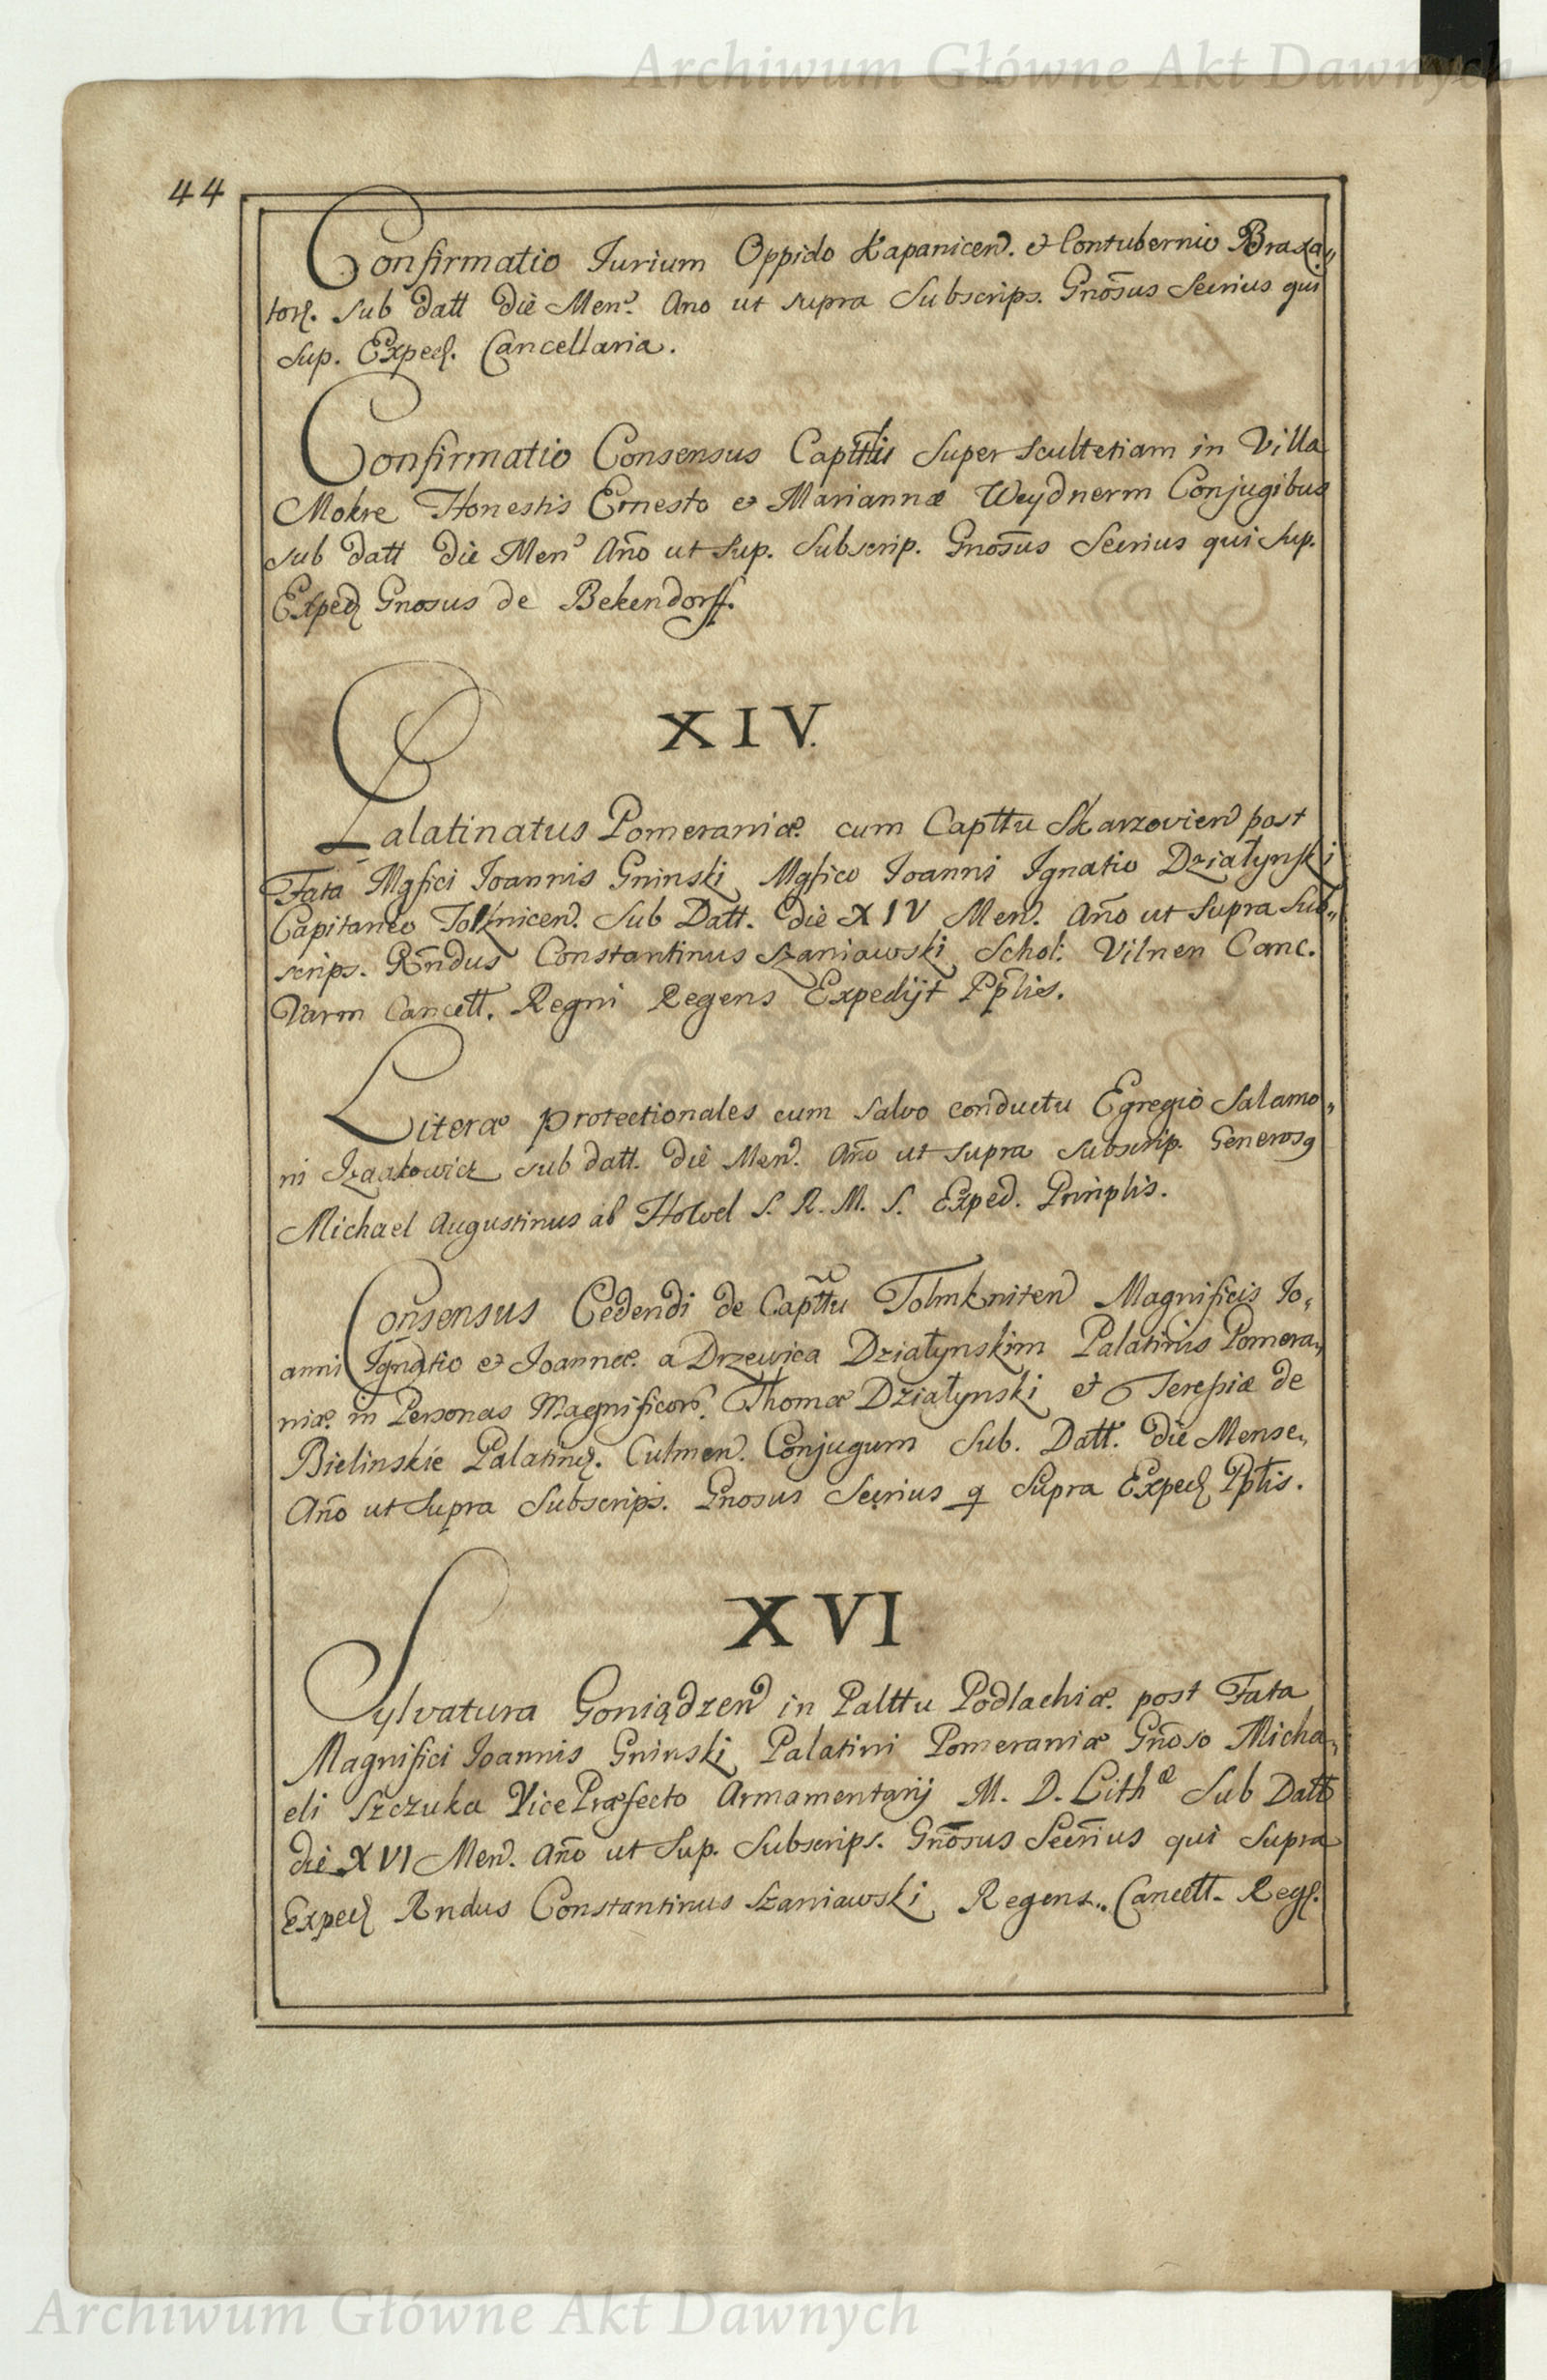 Archiwum Główne Akt Dawnych
44
Confirmatio Iurium Oppido Kapanicen. et Contubernio Braxa„
tor. sub datt die Men. Ano ut supra Subscrips. Gnōsus Secrius qui
sup. Exped. Cancellaria.
Confirmatio Consensus Super Scultetiam in Villa
Mokre Honestis Ernesto et Mariannæ Weydnerm Conjugibus
sub datt die Men Año ut Sup. Subscrip. Gnosus Secrius qui sup.
Exped Gnosus de Bekendorff.
XIV.
Palatinatus Pomeraniæ cum Capttu Skarzovien post
Fata Mgfici Ioannis Gninski Mgfico Ioanni Ignatio Działynski
Capitaneo Sub Datt. die XIV Men. Año ut Supra Sub„
scrips. Rñdus Constantinus Szaniawski Schol: Vilnen Canc.
Varm Cancell. Regni Regens Expedijt Pplies.
Literæ protectionales cum salvo conductu Egregio Salamo„
ni Izaakowicz sub datt. die Men. Año ut supra subscrip. Generosg
Michael Augustinus ab Howel S. R. M. S. Exped.
Consensus Cedendi de Capttu Tolmkniten Magnificis Io„
anni Ignatio et Ioannæ a Drzewica Działynskim Palatinis Pomera„
niæ in Personas Magnificor. Thomæ Działynski et Teresiæ de
Bielinskie Palatin. Culmen. Conjugum Sub. Datt. die Mense„
Año ut Supra Subscrips. Gnosus Secrius q Supra Exped Pptis.
XVI
Sylvatura Goniądzen in Palttu Podlachiæ post Fata
Magnifici Ioannis Gninski Palatini Pomeraniæ Gñoso Micha„
eli Szczuka Vice Præfecto Armamentarij M. D. Lithæ Sub Datt
die XVI Men. Año ut Sup. Subscrips. Gñosus Secrius qui Supra
Exped Rndus Constantinus Szaniawski Regens„ Cancell. Reg.
Archiwum Główne Akt Dawnych